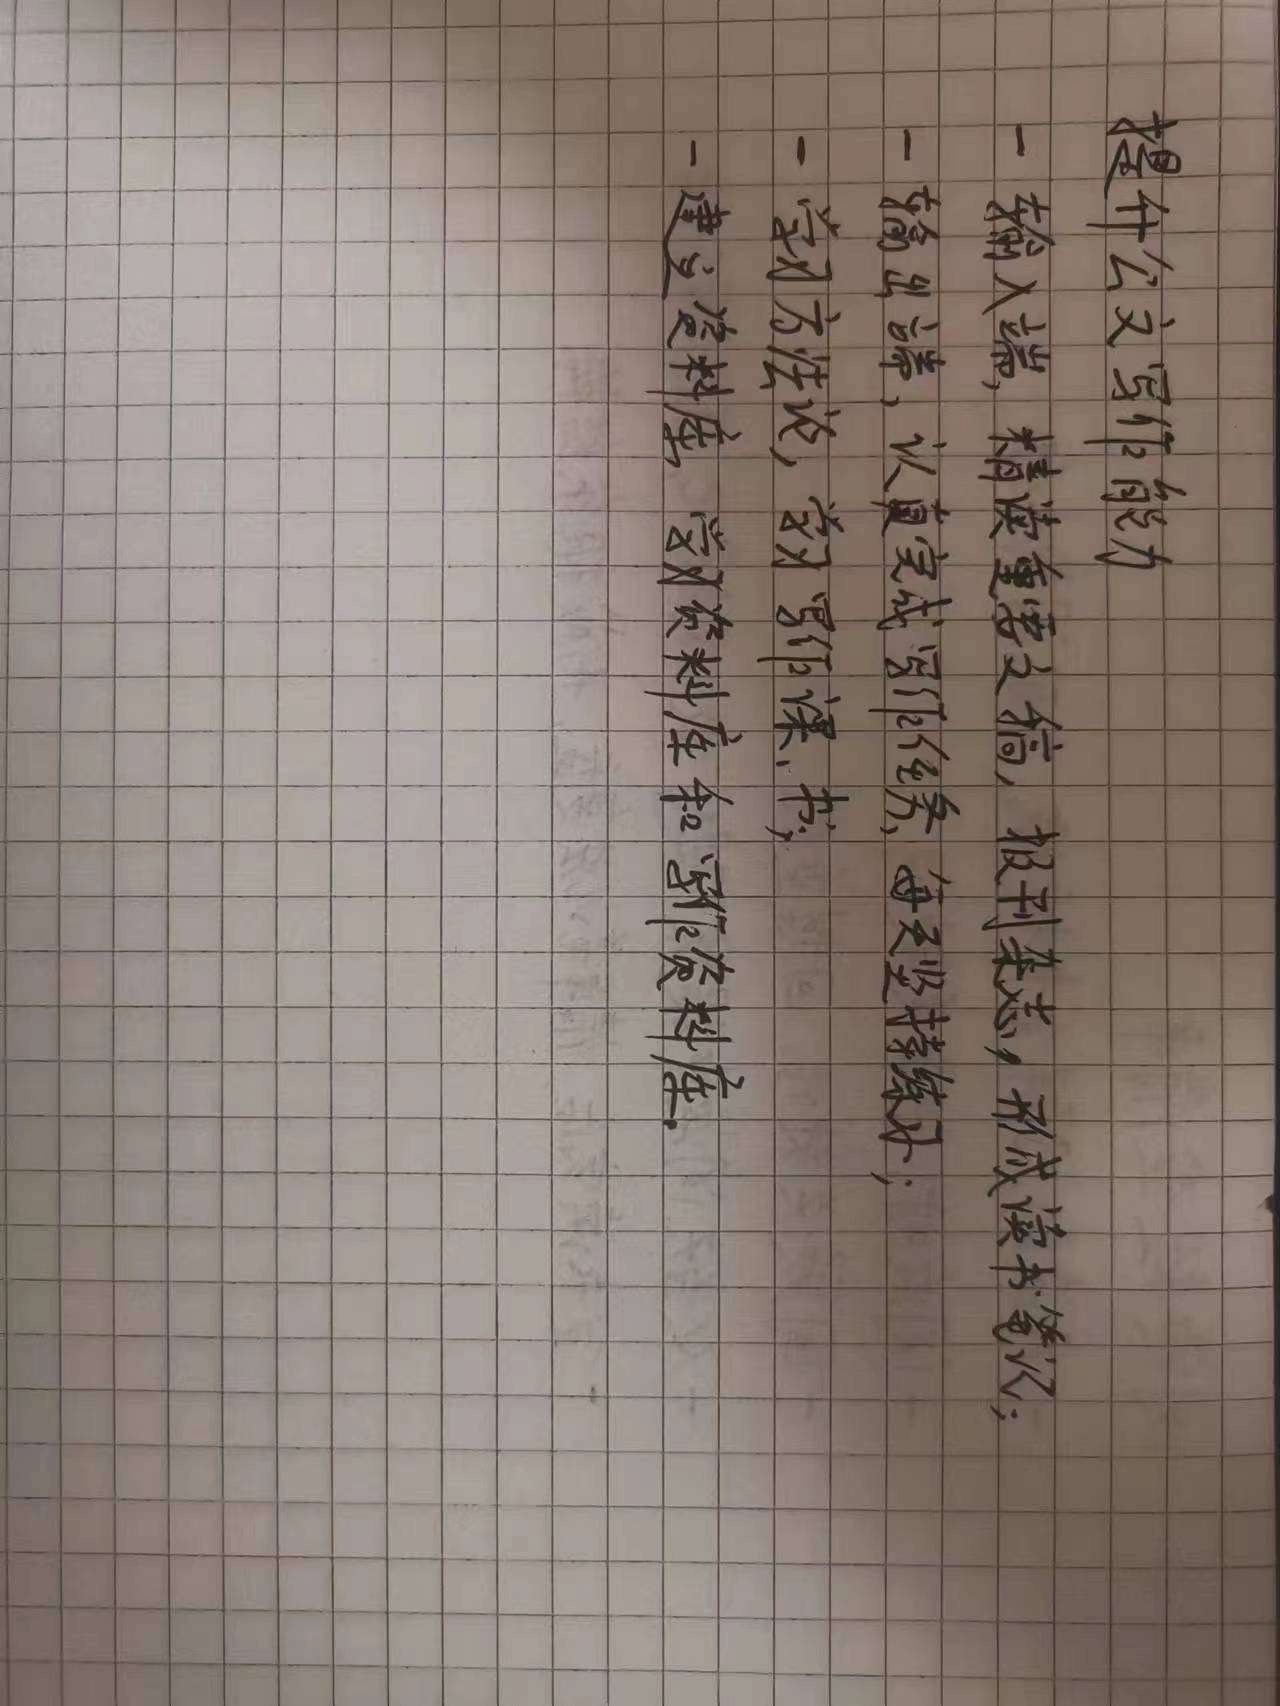 提升公文写作能力
- 输入端，精读重要文稿，报刊杂志，形成读书笔记；
- 输出端，认真完成写作任务，每天坚持练习；
- 学习方法论，学习写作课、书；
- 建立资料库，学习资料库和写作资料库。